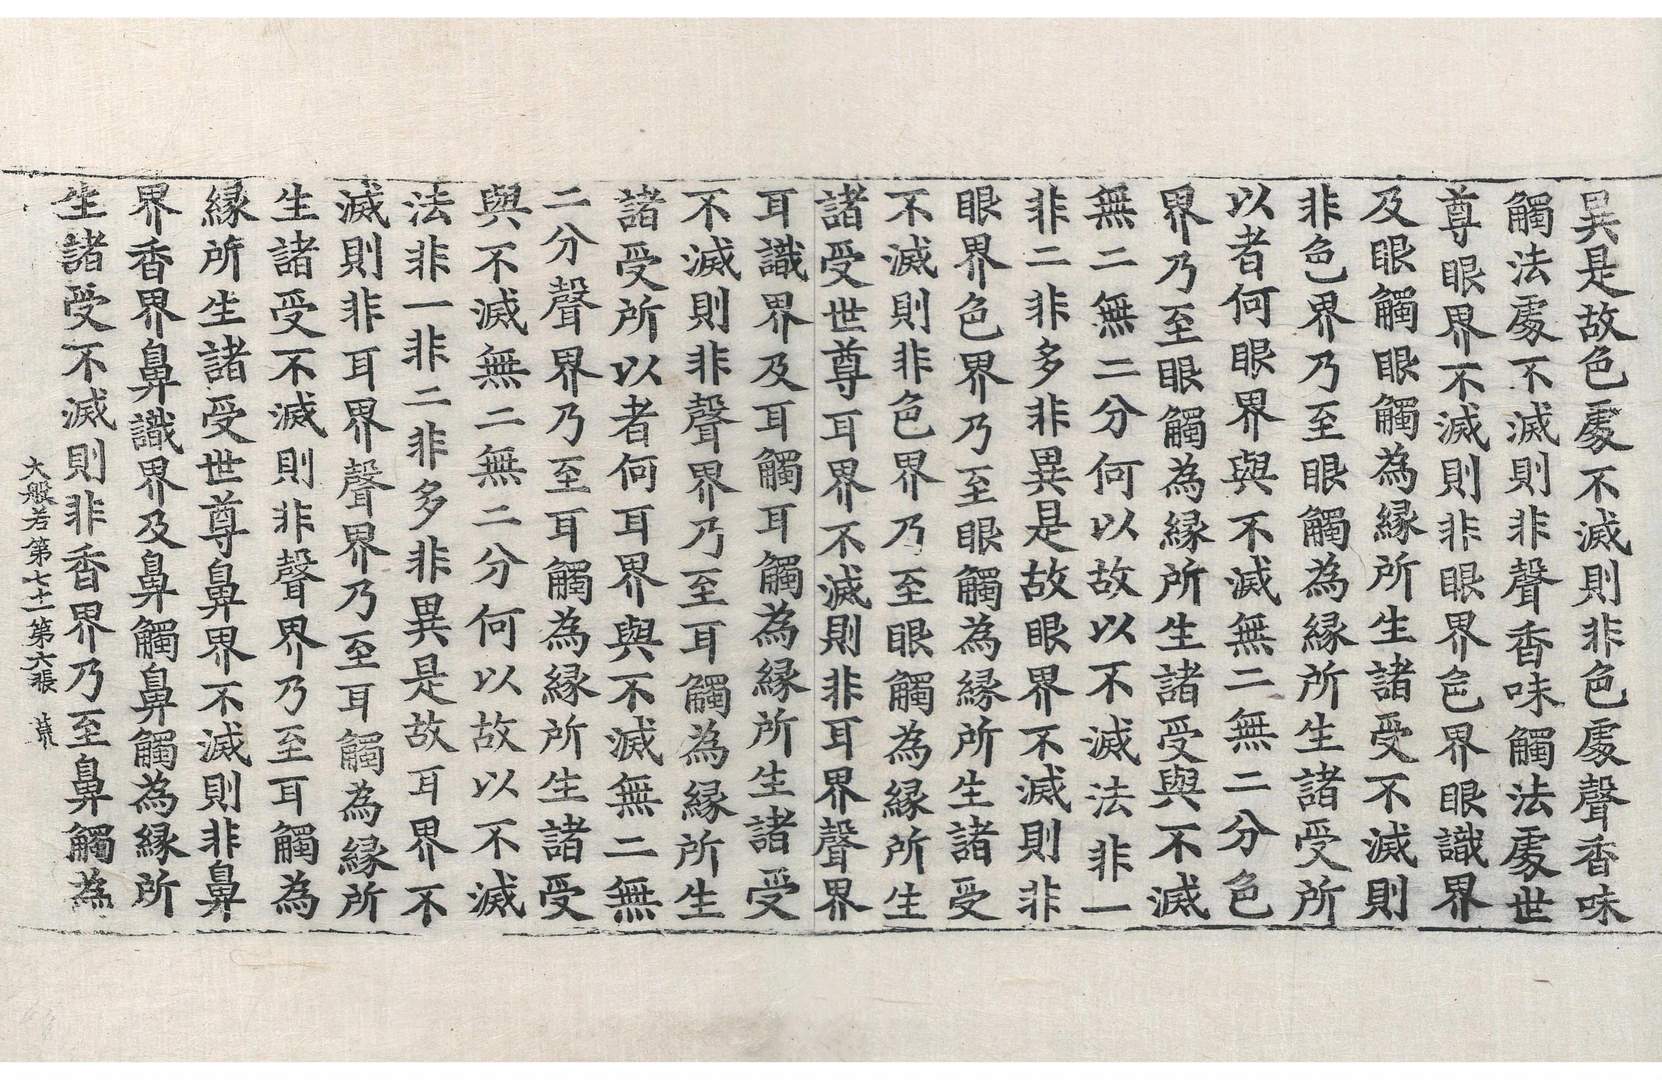 異是故色處不滅則非色處聲香味
觸法處不滅則非聲香味觸法處世
尊眼界不滅則非眼界色界眼識界
及眼觸眼觸為緣所生諸受不滅則
非色界乃至眼觸為緣所生諸受所
以者何眼界與不滅無二無二分色
界乃至眼觸為緣所生諸受與不滅
無二無二分何以故以不滅法非一
非二非多非異是故眼界不滅則非
眼界色界乃至眼觸為緣所生諸受
不滅則非色界乃至眼觸為緣所生
諸受世尊耳界不滅則非耳界聲界
耳識界及耳觸耳觸為緣所生諸受
不滅則非聲界乃至耳觸為緣所生
諸受所以者何耳界與不滅無二無
二分聲界乃至耳觸為緣所生諸受
與不滅無二無二分何以故以不滅
法非一非二非多非異是故耳界不
滅則非耳界聲界乃至耳觸為緣所
生諸受不滅則非聲界乃至耳觸為
緣所生諸受世尊鼻界不滅則非鼻
界香界鼻識界及鼻觸鼻觸為緣所
生諸受不滅則非香界乃至鼻觸為
大般若第七十一 第六張 荒